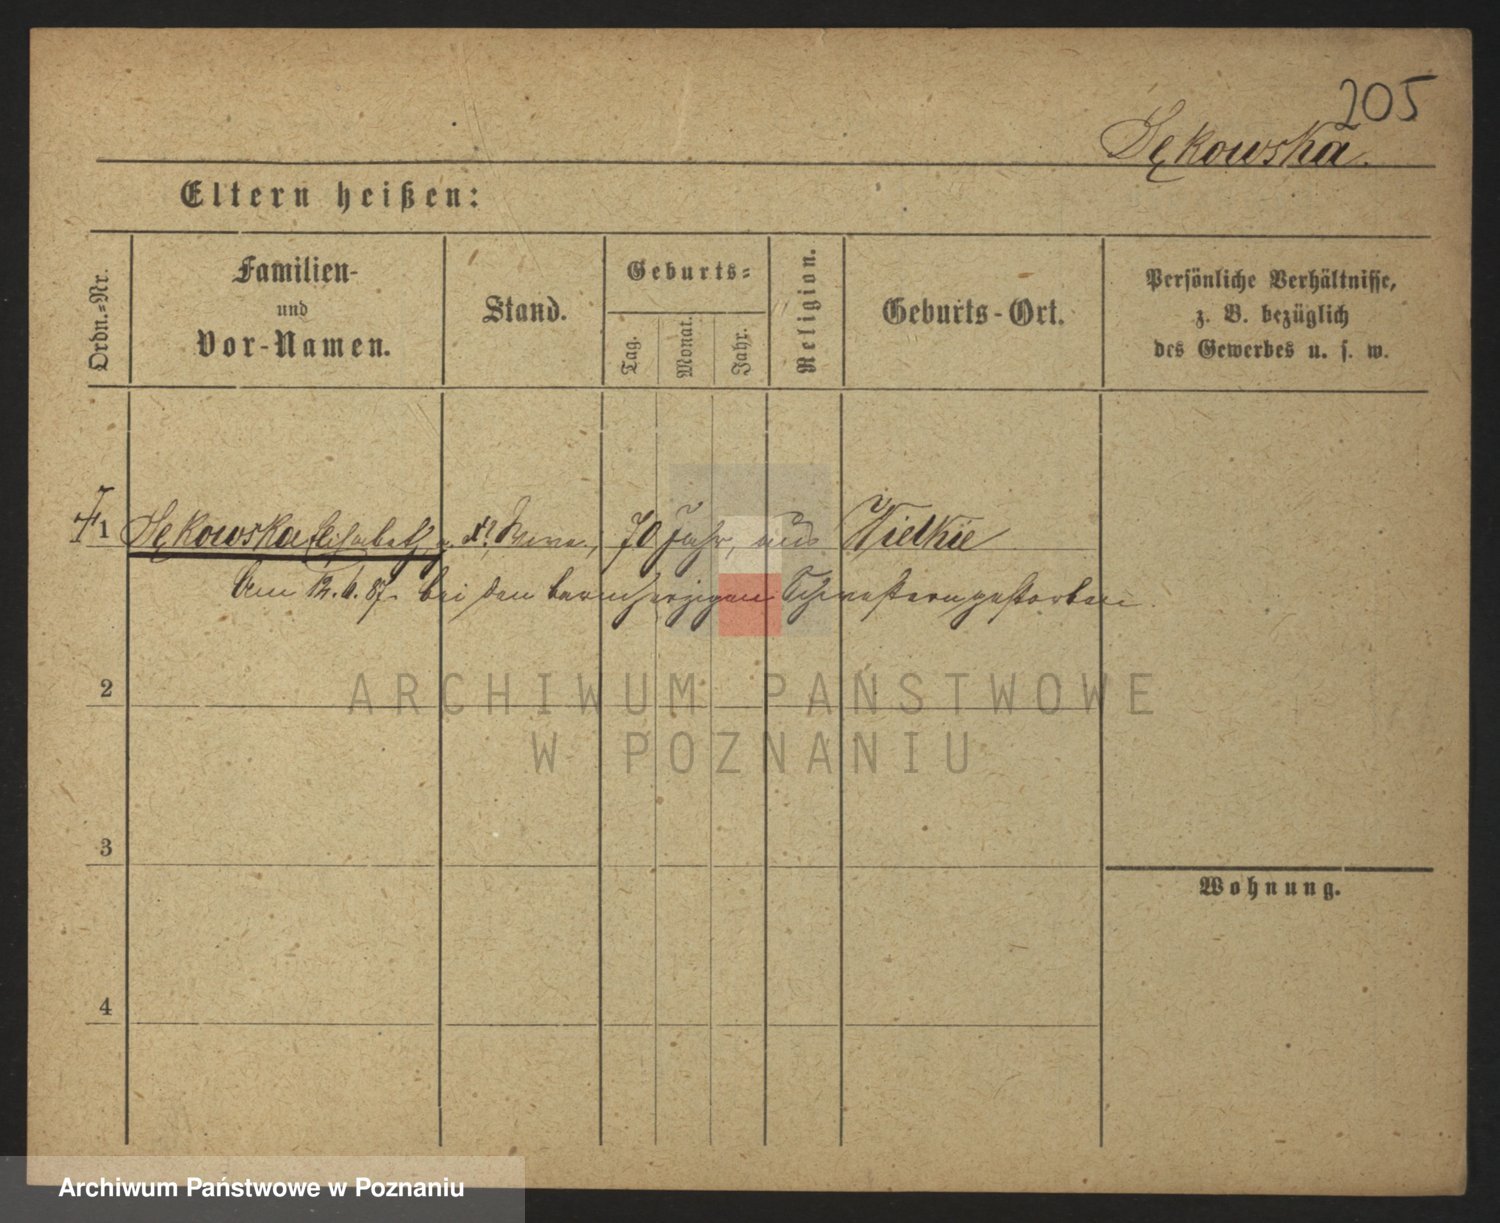 205
Sękowska.
Eltern heißen:
Ordn.-Nr.
Familien-
und
Vor-Namen.
Stand.
Geburts-
Tag.
Monat.
Jahr.
Religion.
Geburts-Ort.
Persönliche Verhältnisse,
z. B. bezüglich
des Gewerbes u. s. w.
1 Sękowska Elisabeth, 70 Jahr, aus Wielkie
Am 12.6.87. bei den barmherzigen Schwestern gestorben.
2
ARCHIWUM PAŃSTWOWE
W POZNANIU
3
Wohnung.
4
Archiwum Państwowe w Poznaniu